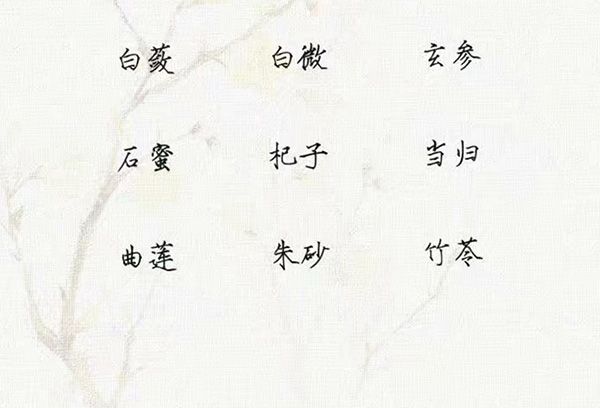 白蔹 白微 玄参
石蜜 杞子 当归
曲莲 朱砂 竹苓